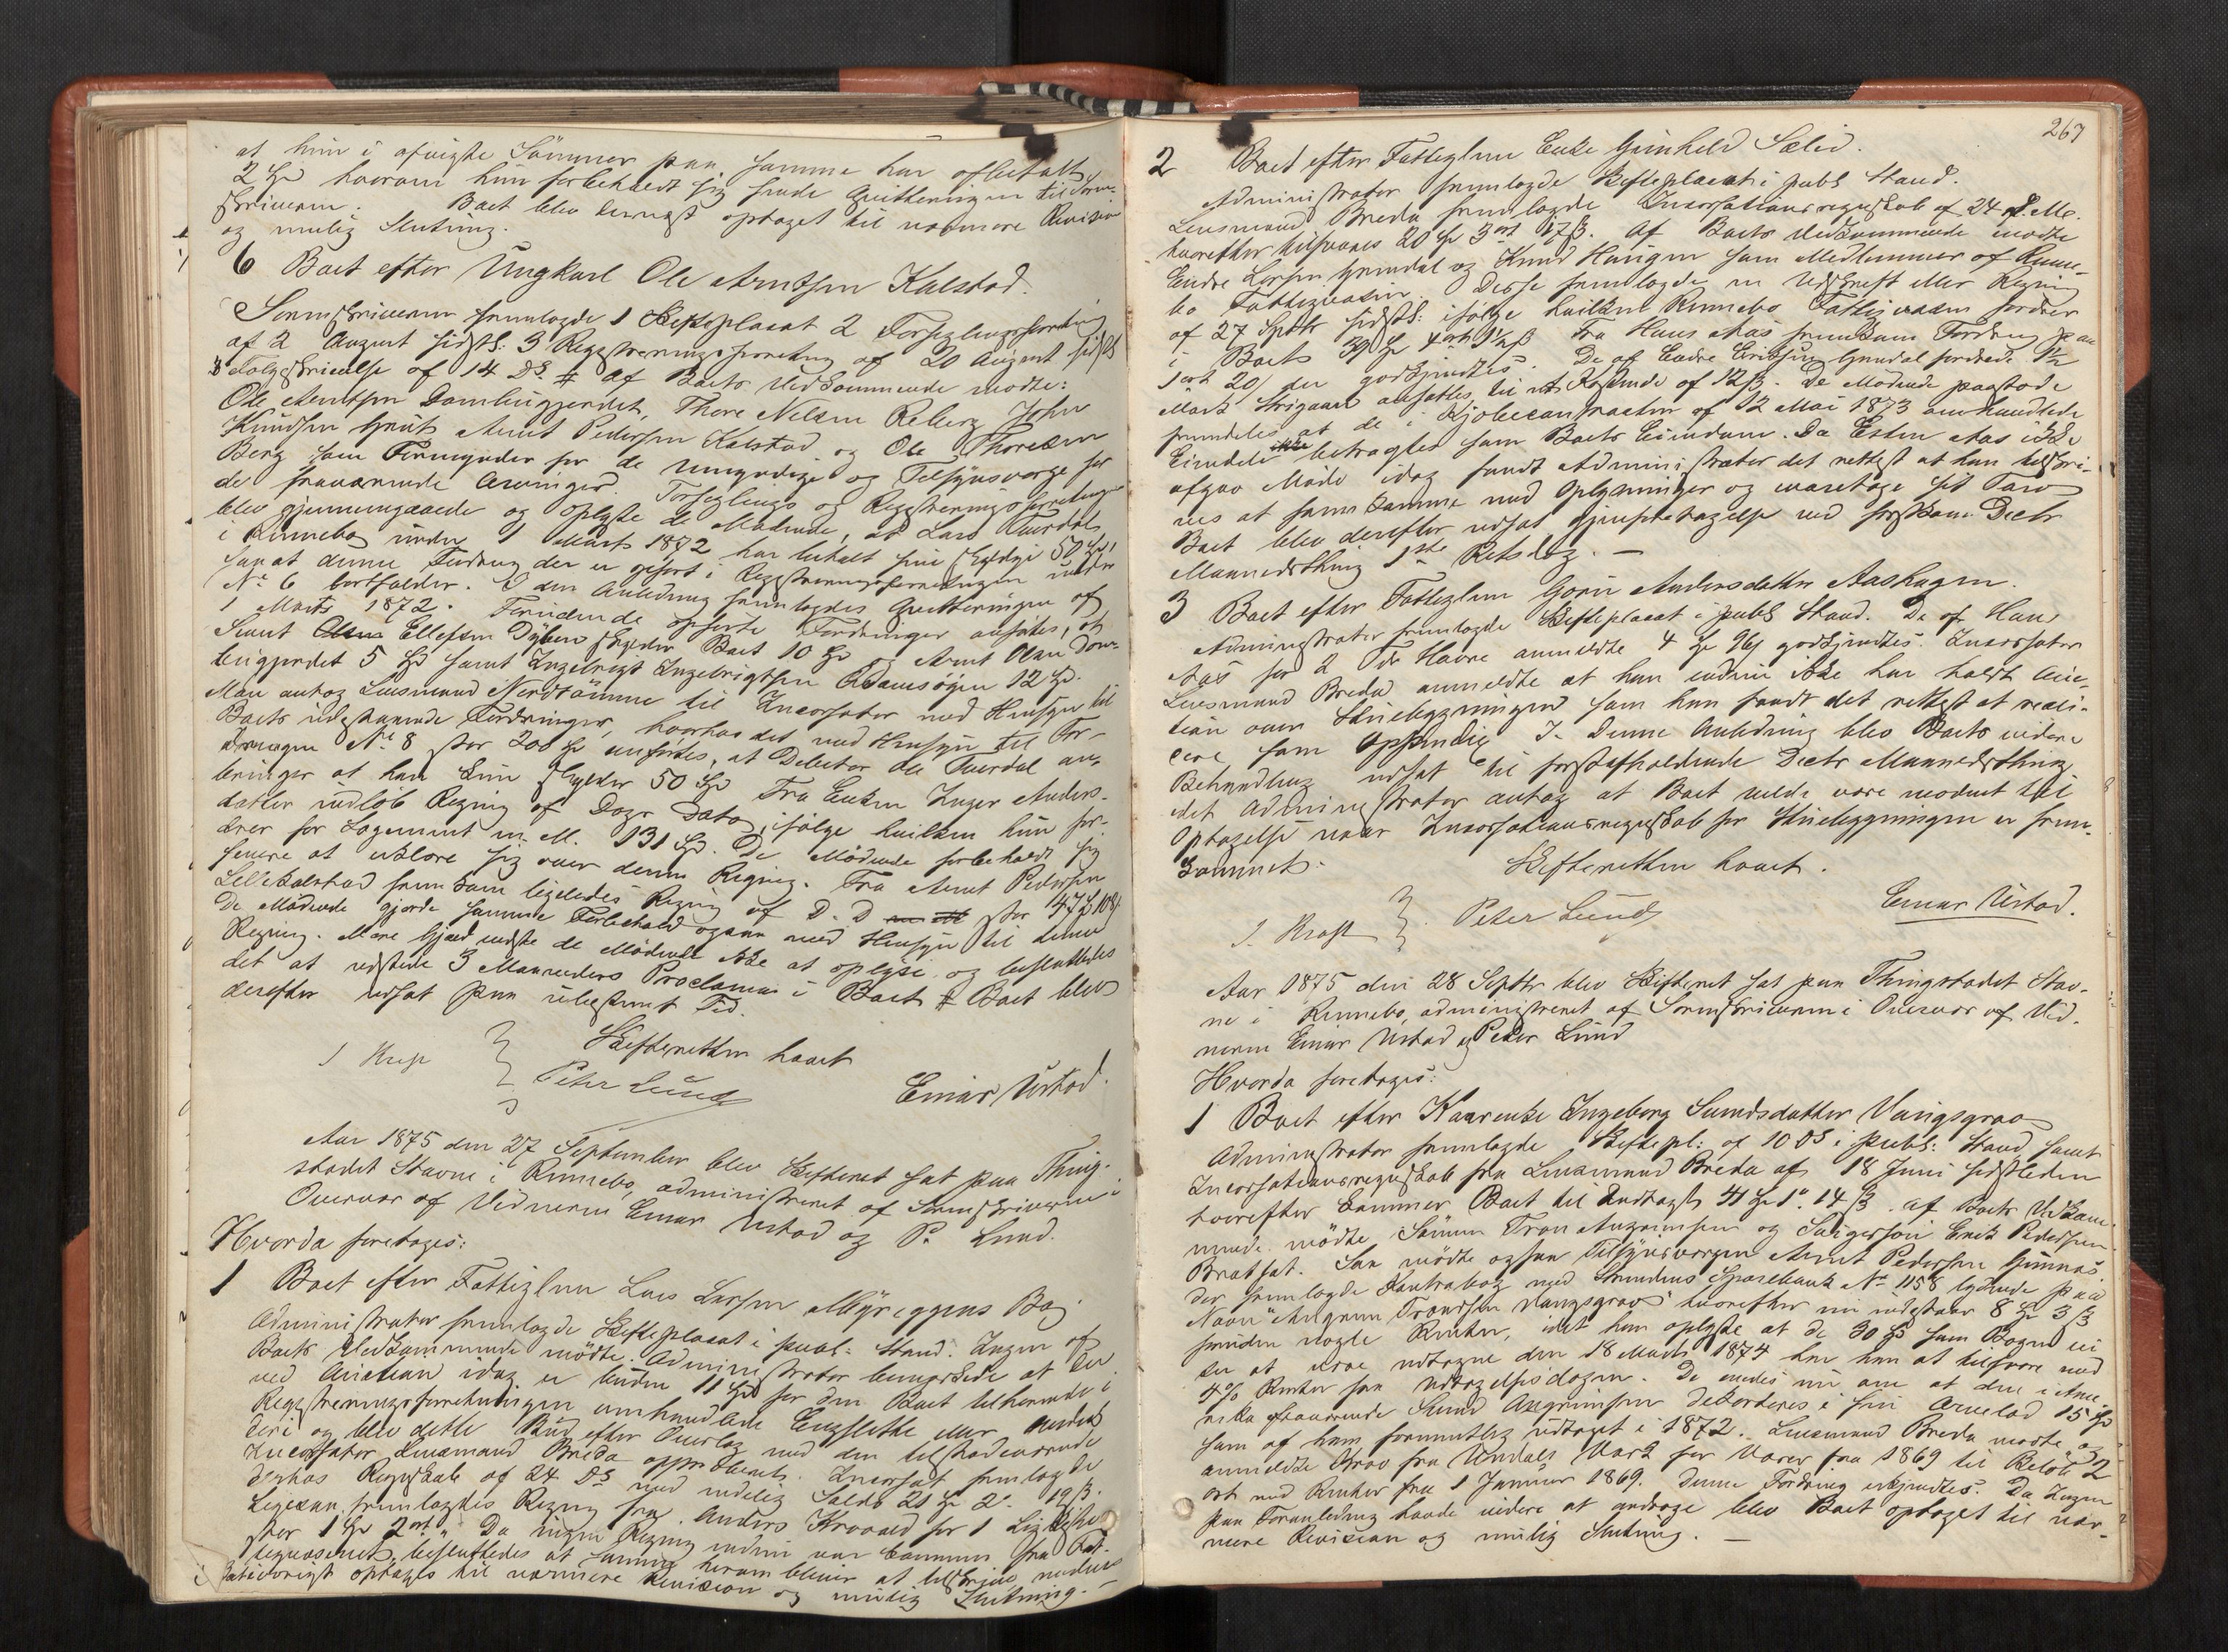 at hun i afvigte Sommer paa samme har afbetalt
2 Spd hvorom hun forbeholdt sig sende Qvitteringen til Soren-
skriveren. Boet blev dernæst optaget til nærmere Revision
og mulig Slutning.
6 Boet efter Ungkarl Ole Arntsen Kalstad.
Sorenskriveren fremlagde 1 Skifteplacat 2 Forseglingsforretning
af 2 August sidstl: 3 Registreringsforretng af 20 August sidstl
Følgeskrivelse af 14 Ds. Af Boets Vedkommende mødte:
Ole Arntsen Damlugjerdet, Thore Nelsen Reberg John
Knudsen Grut Arnt Pedersen Kalstad og Ole Thoresen
Berg som Formynder for de Umyndige og Tilsynsverge for
de fraværende Arvinger. Forseglings og Registreringsforretningen
blev gjennemgaaede og oplyste de Mødende, at Lars Kurdal
i Rennebo under 1 Marts 1872 har betalt sin Skyldige 50 Spd,
saa at denne Fordring der er opført i Registreringsforretningen under
No 6 bortfalder. I den Anledning fremlagdes Qvitteringen af
1 Marts 1872. Forinden opførte Fordringer anførtes, at
Sivert Ellefsen Dyben skylder Boet 10 Spd og Arnt Olsen Dom-
lugjerdet 5 Spd samt Ingebrigt Ingebrigtsen Adamsøyen 12 Spd.
Man antog Lensmand Nordtømme til Incassator med Hensyn til
Boets udestaaende Fordringer, hvorhos det med Hensyn til For-
dringen No 8 stor 200 Spd anførtes, at Debitor Ole Kurdal an-
bringer at han kun skylder 50 Spd Fra Enken Inger Anders-
datter indløb Regning af Dags Dato, ifølge hvilken hun for-
drer for Logement m. M. 131 Spd. De Mødende forbeholdt sig
senere at erklære sig over denne Regning. Fra Arnt Pedersen
Lillekalstad fremkom ligeledes Regning af D. D stor 47 Spd 108
De Mødende gjorde samme Forbehold ogsaa med Hensyn til denne
Regning. Mere Gjæld vidste de Mødende ikke at oplyse og besluttedes
det at udstede 3 Maaneders Proclama i Boet. Boet blev
derefter udsat paa ubestemt Tid.
Skifteretten hævet
Peter Lund Einar Ustad.
Aar 1875 den 27 September blev Skifteret sat paa Thing-
stedet Stavne i Rennebo, administreret af Sorenskriveren i
Overvær af Vidnerne Einar Ustad og P. Lund.
Hvorda foretoges:
1 Boet efter Fattiglem Lars Larsen Myreggens Bo
Administrator fremlagde Skifteplacat i publ: Stand. Ingen af
Boets Vedkommende mødte. Administrator bemærkede at der
ved Auction idag er buden 11 Spd for den Boet tilhørende i
Registreringsforretningen omhandlede Engslette
og blev dette Bud efter Overlæg med den tilstedeværende
Incassator Lensmand Breda approberet. Incassator fremlagde
derhos Regnskab af 24 Ds med udelig Saldo 21 Spd 2 ort 19 ß.
Ligesaa fremlagdes Regning fra Anders Krovold for 1 Ligkiste
stor 1 Spd 2 ort. Da ingen Regning endnu var kommen fra Fat-
tigvæsenet, besluttedes at samme herom bliver at tilskrive
Bo iøvrigt optages til nærmere Revision og mulig Slutning. —
267
2 Boet efter Fattiglem Enke Gunhild Sælid.
Administrator fremlagde Skifteplacat i publ Stand.
Lensmand Breda fremlagde Incassationsregnskab af 24 d. M.
hvorefter tilsvares 20 Spd 3 ort 17 ß. Af Boets Vedkommende mødte
Endre Larsen Grindal og Knud Haugen som Medlemmer af Renne-
bo Fattigvæsen. Disse fremlagde en Udskrift eller Regning
af 27 Septbr sidstl: ifølge hvilken Rennebo Fattigvæsen fordrer
i Boet 39 Spd 4 ort 1½ ß Fra Hans Aas fremkom Fordring paa
1 ort 20 der godkjendtes. De af Endre Eriksen Grindal fordrede
Mark Strigaarn ansattes til et Kostende af 12 ß. De Mødende paastode
fremdeles at de i Kjøbecontracten af 12 Mai 1873 omhandlede
Eiendele betragtes som Boets Eiendom. Da Esten Aas ikke
afgav Møde idag fandt Administrator det rettest at han tilskri-
ves at fremkomme med Oplysninger og varetage sit Tarv
Boet blev derefter udsat gjenforetagelse ved førstkom. Dectr
Maanedsthing 1ste Retsdag. —
3 Boet efter Fattiglem Goru Andersdatter Aashagen.
Administrator fremlagde Skifteplacat i publ Stand. De af Hans
Aas for 2 Tdr Havre anmeldte 4 Spd 96 godkjendtes. Incassator
Lensmand Breda anmeldte at han endnu ikke har holdt Auc-
tion over Huebygningen som han fandt det rettest at reali-
sere som I denne Anledning blev Boets videre
Behandling udsat til førstafholdende Dectr Maanedsthing
det Administrator antog at Boet vilde være modent til
Optagelse naar Incassationsregnskab for Huebygningen er frem-
kommet.
Skifteretten hævet.
Peter Lund Einar Ustad.
Aar 1875 den 28 Septbr blev Skifteret sat paa Thingstedet Stav-
ne i Rennebo, administreret af Sorenskriveren i Overvær af Vid-
nerne Einar Ustad og Peter Lund
Hvorda foretoges:
1 Boet efter Kaarenke Ingeborg Sivertsdatter Vangsgrav
Administrator fremlagde Skiftepl: af 10 Ds i publ: Stand samt
Incassationsregnskab fra Lensmand Breda af 18 Juni sidstleden
hvorefter kommer Boet til Indtægt 41 Spd 1 ort 14 ß. Af Boets Vedkom-
mende mødte Sønnen Tron Angrimsen og Svigersøn Erik Pedersen
Bratset. Saa mødte ogsaa Tilsynsvergen Arnt Pedersen Gunnes
der fremlagde Contrabog med Strindens Sparebank No 1158 lydende paa
Navn "Angrim Trondsen Vangsgrav" hvorefter nu indestaar 8 Spd 3 ß
foruden nogle Renter, idet han oplyste at de 30 Spd som Bogen vi-
ser at være udtagne den 18 Marts 1874 har han at tilsvare med
4% Renter fra Udtagelsesdagen. De enedes nu om at den i Ame-
rika fraværende Sivert Angrimsen dekorteres i sin Arvelod 15 Spd
som af ham formentlig udtaget i 1872. Lensmand Breda mødte og
anmeldte Krav fra Undals Værk for Varer fra 1869 til Beløb 2
ort med Renter fra 1 Januar 1869. Denne Fordring erkjendtes. Da Ingen
paa Foranledning havde videre at andrage blev Boet optaget til nær-
mere Revision og mulig Slutning. —